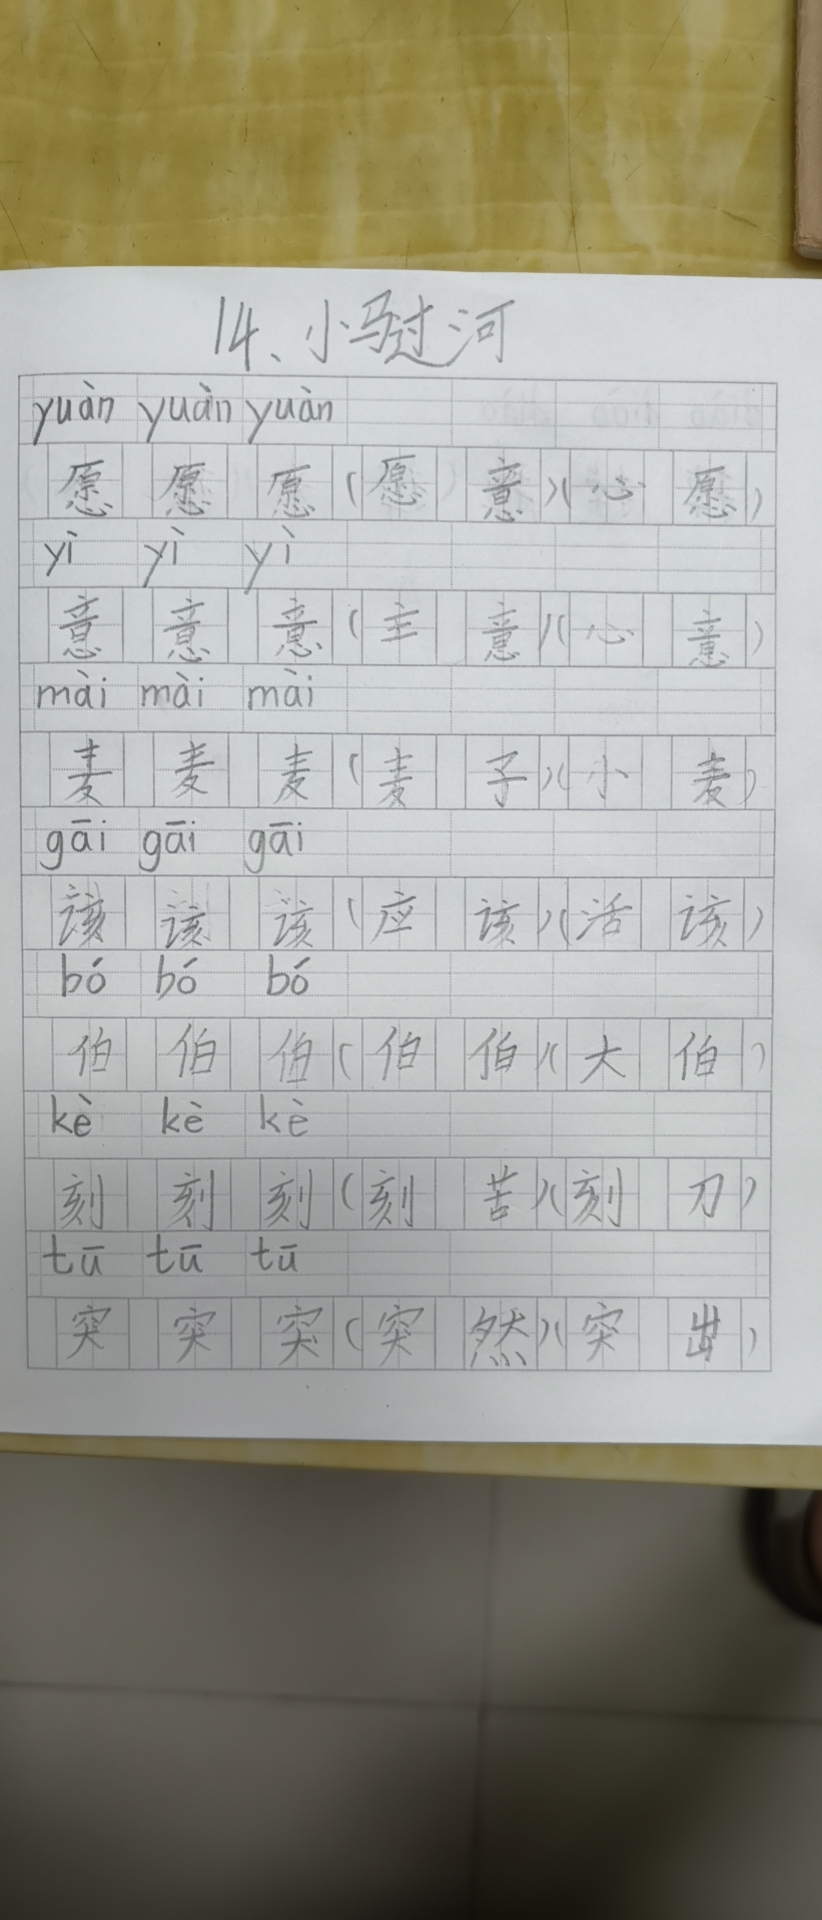 14、小马过河
yuàn yuàn yuàn
愿 愿 愿 (愿 意)(心 愿)
yì yì yì
意 意 意 (主 意)(心 意)
mài mài mài
麦 麦 麦 (麦 子)(小 麦)
gāi gāi gāi
该 该 该 (应 该)(活 该)
bó bó bó
伯 伯 伯 (伯 伯)(大 伯)
kè kè kè
刻 刻 刻 (刻 苦)(刻 刀)
tū tū tū
突 突 突 (突 然)(突 出)